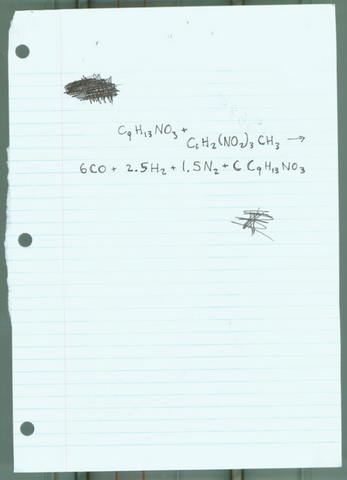 C9H13NO3 +
C6H2(NO2)3CH3 →
6CO + 2.5H2 + 1.5N2 + C C9H13NO3